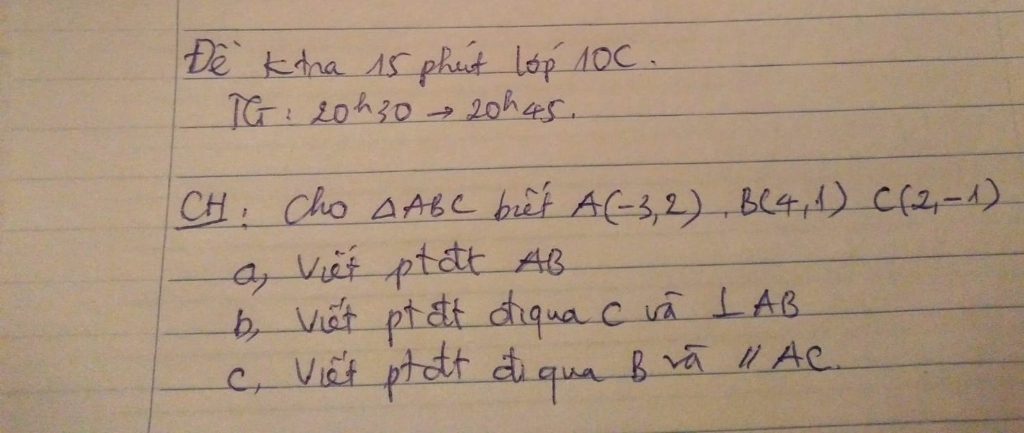 Đề ktra 15 phút lớp 10C.
TG: 20h30 → 20h45.
CH: Cho △ABC biết A(-3,2), B(4,1) C(2,-1)
a, Viết ptđt AB
b, Viết ptđt đi qua C và ⊥ AB
c, Viết ptđt đi qua B và // AC.